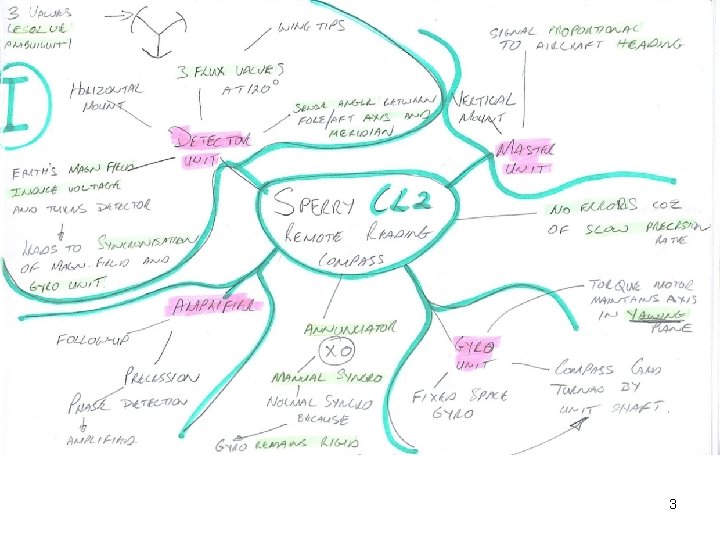 3 VALUES
RESOLVE
AMBIGUITY
I
HORIZONTAL
MOUNT
3 FLUX VALVES
AT 120°
WING TIPS
SENSE ANGLE BETWEEN
FORE/AFT AXIS AND
MERIDIAN
DETECTOR
UNIT
EARTH'S MAGN FIELD
INDUCE VOLTAGE
AND TURNS DETECTOR
LEADS TO SYNCRONISATION
OF MAGN. FIELD AND
GYRO UNIT.
SIGNAL PROPORTIONAL
TO AIRCRAFT HEADING
VERTICAL
MOUNT
MASTER
UNIT
SPERRY CL2
REMOTE READING
COMPASS
NO ERRORS COZ
OF SLOW PRECESSION
RATE
AMPLIFIER
FOLLOW-UP
PRECESSION
PHASE DETECTION
AMPLIFIED
ANNUNCIATOR
XO
MANUAL SYNCRO
NORMAL SYNCRO
BECAUSE
GYRO REMAINS RIGID
GYRO
UNIT
FIXED SPACE
GYRO
TORQUE MOTOR
MAINTAINS AXIS
IN YAWING
PLANE
COMPASS CARD
TURNED BY
UNIT SHAFT.
3